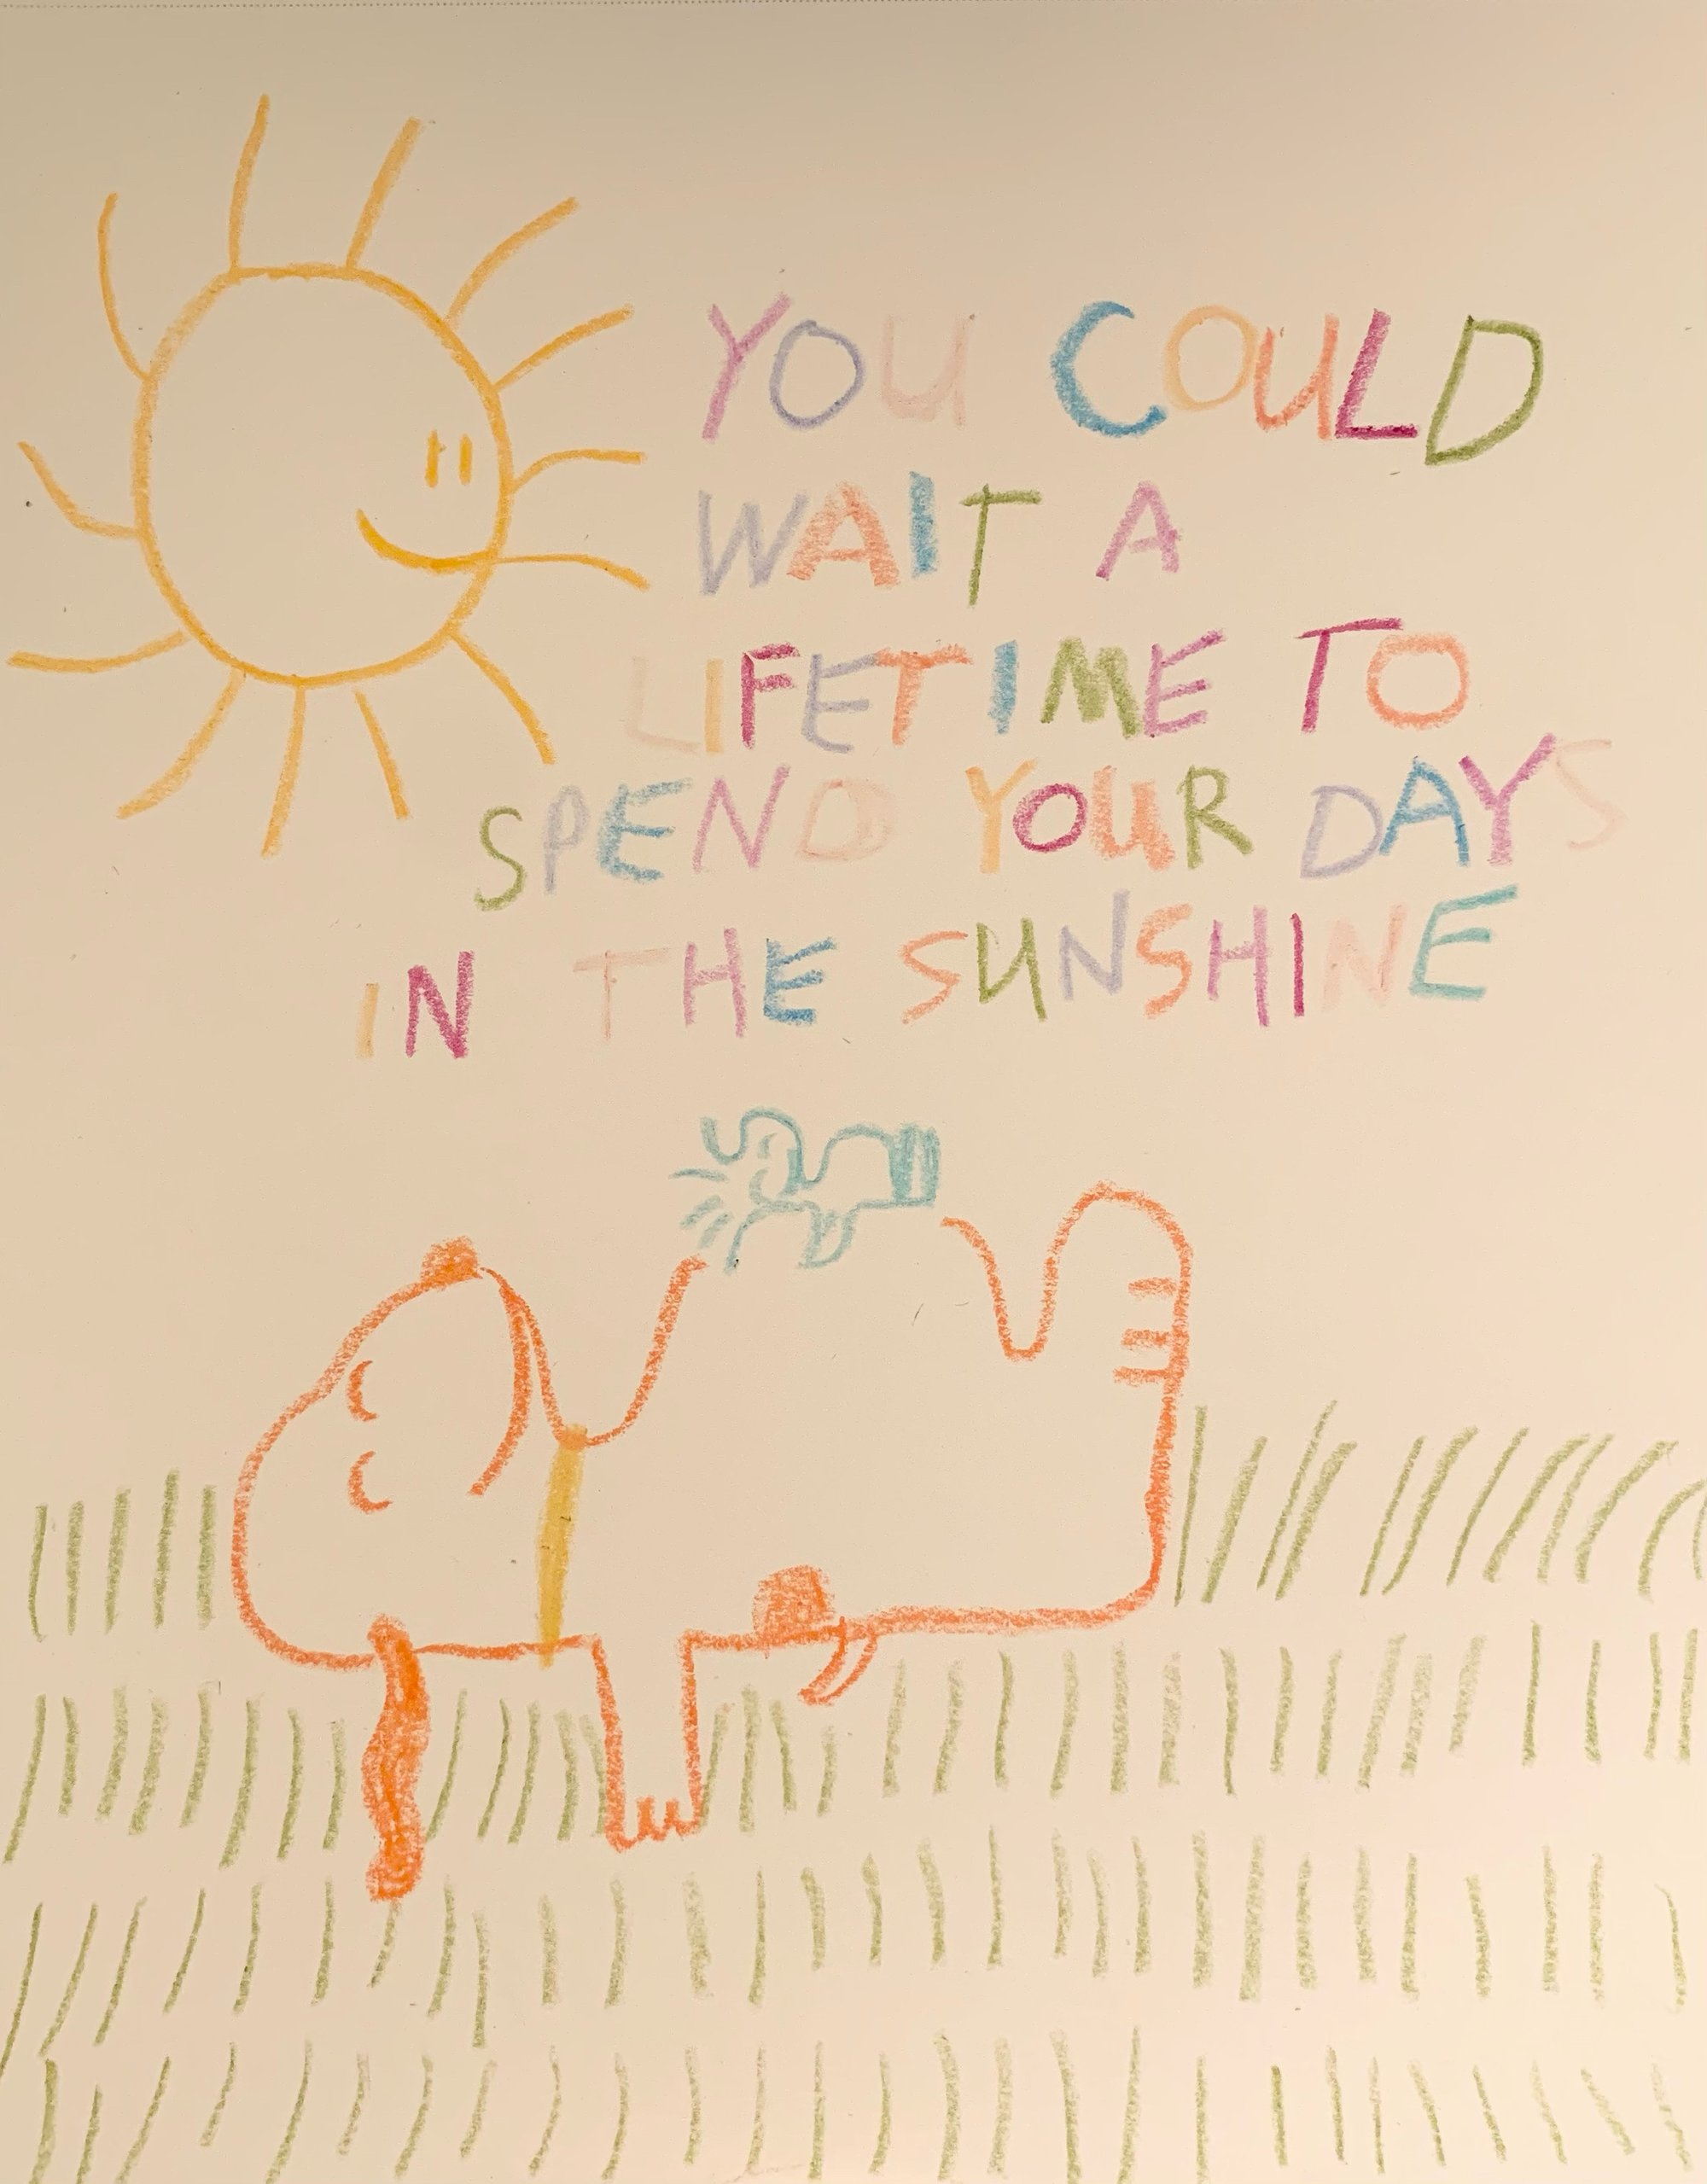 YOU COULD
WAIT A
LIFETIME TO
SPEND YOUR DAYS
IN THE SUNSHINE